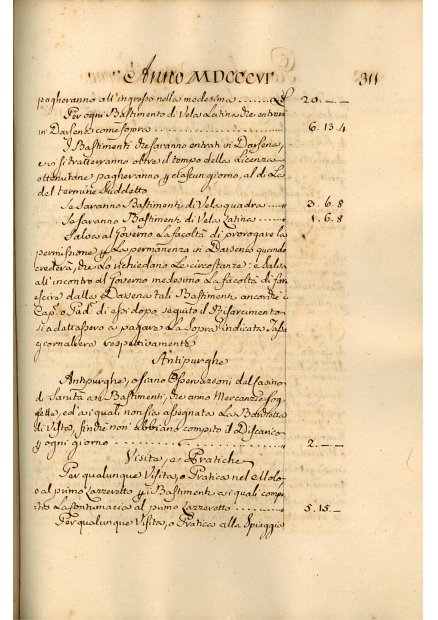 Anno MDCCCVI 311
pagheranno all'ingresso nella medesima ........ £ 20.—.—
Per ogni Bastimento di Vela Latina che entrerà
in Darsena come sopra ........ 6.13.4
I Bastimenti che saranno entrati in Darsena,
e vi si tratterranno oltre il tempo della Licenza
ottenutane pagheranno per ciascun giorno, al di là
del termine suddetto
Se saranno Bastimenti di Vela quadra ........ 3.6.8
Se saranno Bastimenti di Vela Latina ........ 1.6.8
Salva al Governo la facoltà di prorogare la
permissione per la permanenza in Darsena quando
crederà, che lo richiedano le circostanze: e salva
all'incontro al Governo medesimo la facoltà di far
escire dalla Darsena tali Bastimenti ancorchè i
Cap.ⁿⁱ o Padⁿⁱ di essi dopo seguito il Risarcimento
si adattassero a pagare la sopra indicata Tassa
giornaliera respettivamente
Antipurghe
Antipurghe, o siano Osservazioni dal Casino
di Sanità a i Bastimenti, che anno Mercanzie sog-
gette, ed a i quali non sia assegnata la Bandetta
di Visto, finchè non abbiano compito il Discarico
per ogni giorno ........ 2.—.—
Visita, e Pratiche
Per qualunque Visita, o Pratica nel Molo,
o al primo Lazzeretto per i Bastimenti a i quali compi-
sca la contumacia al primo Lazzeretto ........ 5.15.—
Per qualunque Visita, o Pratica alla Spiaggia